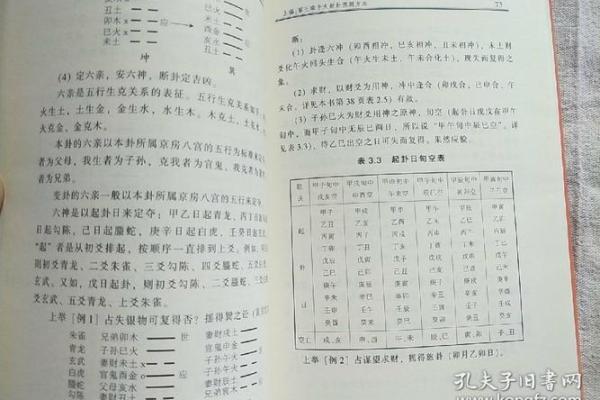 卯木x
火
未土
未土
酉金
亥水
丑土
坤
巽
(4) 定六亲，安六神，断卦定吉凶。
六亲是五行生克关系的表征。五行生克关系如下：
火生土，土生金，金生水，水生木。木克土，土克
水克金，金克木。
本卦的六亲以本卦所属京房八宫的五行为标准来
者为父母，我生者为子孙，克我者为官鬼，我克者
者为兄弟。
变卦的六亲一般以本卦所属京房八宫的五行来定
六神是以起卦日来定夺：甲乙日起青龙，丙丁日
日起勾陈，己日起螣蛇，庚辛日起白虎，壬癸日起玄武
"起"者是从初爻排起，按顺序一直排到上爻。例如
则初爻青龙、二爻朱雀、三爻勾陈、四爻螣蛇、五爻
玄武。又如，戊日起卦，则初爻勾陈、二爻螣蛇、三
爻玄武、五爻青龙、上爻朱雀。
上举［例1］占失银物可复得否？摇得巽之讼
朱雀 兄弟卯木 世 妻财戌土
青龙 子孙巳火 官鬼申金
玄武 妻财未土x 子孙午火
白虎 官鬼酉金o 应 子孙午火
螣蛇 父母亥水 妻财辰土
勾陈 妻财丑土
73
断：
(1) 卦逢六冲（卯酉相冲，巳亥相冲，丑未相冲），未土财
爻化午火回头生合（午火生未土，午未合化土），既失而复得之
象。
(2) 求财，以财爻为用神，冲中逢合（卯戌合，巳申合，午
未合。详见本书第38页表2.5）有救。
(3) 子孙巳火为财爻用神之原神，旬空（起卦日戊戌在甲午
旬中，而甲子旬中无辰巳两日，所以说“甲午旬中辰巳空”。详
见表3.3），待乙巳出空之日可失而复得。果然应验。
表 3.3 起卦日旬空表
甲子旬中 甲戌旬中 甲申旬中 甲午旬中 甲辰旬中 甲寅旬中
戌亥空 申酉空 午未空 辰巳空 寅卯空 子丑空
甲子 甲戌 甲申 甲午 甲辰 甲寅
乙丑 乙亥 乙酉 乙未 乙巳 乙卯
起 丙寅 丙子 丙戌 丙申 丙午 丙辰
丁卯 丁丑 丁亥 丁酉 丁未 丁巳
戊辰 戊寅 戊子 戊戌 戊申 戊午
卦 己巳 己卯 己丑 己亥 己酉 己未
庚午 庚辰 庚寅 庚子 庚戌 庚申
辛未 辛巳 辛卯 辛丑 辛亥 辛酉
日 壬申 壬午 壬辰 壬寅 壬子 壬戌
癸酉 癸未 癸巳 癸卯 癸丑 癸亥
空亡 戌、亥 申、酉 午、未 辰、巳 寅、卯 子、丑
上举［例2］占谋望求财，摇得旅卦（卯月乙卯日）。
孔夫子旧书网